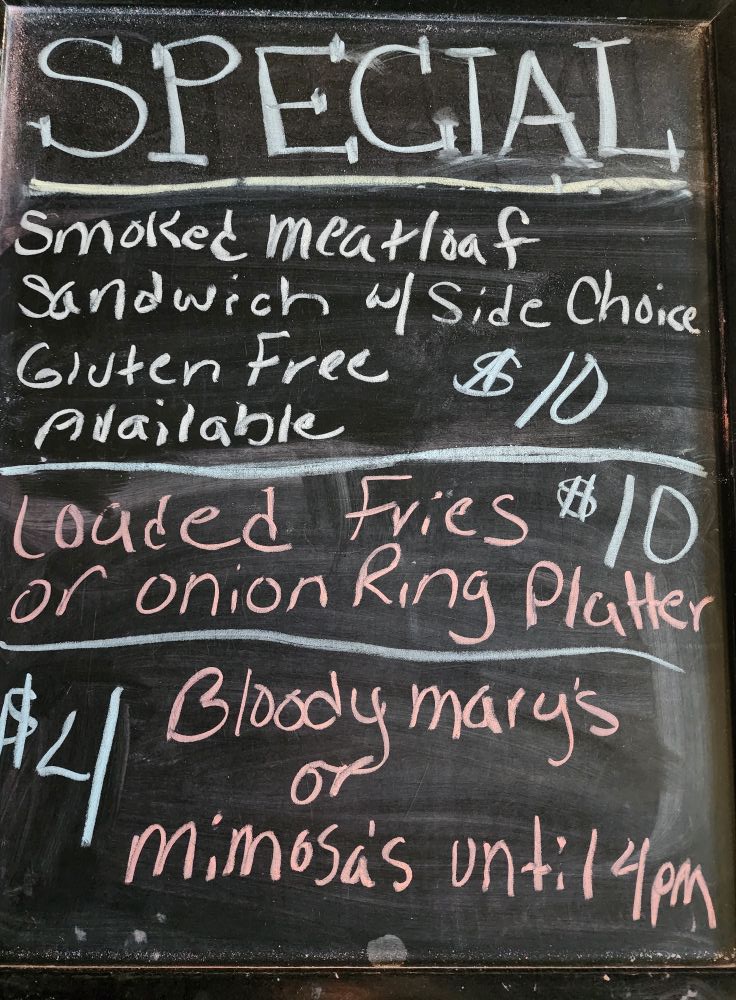 SPECIAL
Smoked meatloaf
Sandwich w/ Side Choice
Gluten Free $10
Available
Loaded Fries $10
or onion Ring Platter
$4 Bloody mary's
or
mimosa's until 4pm